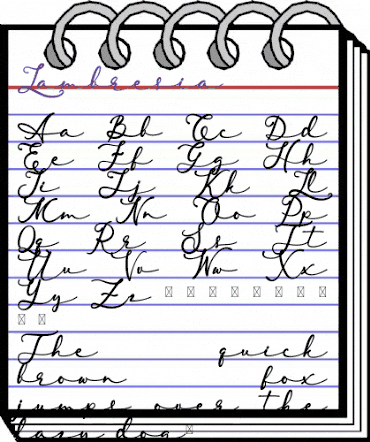 Lambresia
Aa Bb Cc Dd
Ee Ff Gg Hh
Ii Jj Kk Ll
Mm Nn Oo Pp
Qq Rr Ss Tt
Uu Vv Ww Xx
Yy Zz
The quick
brown fox
jumps over the
lazy dog